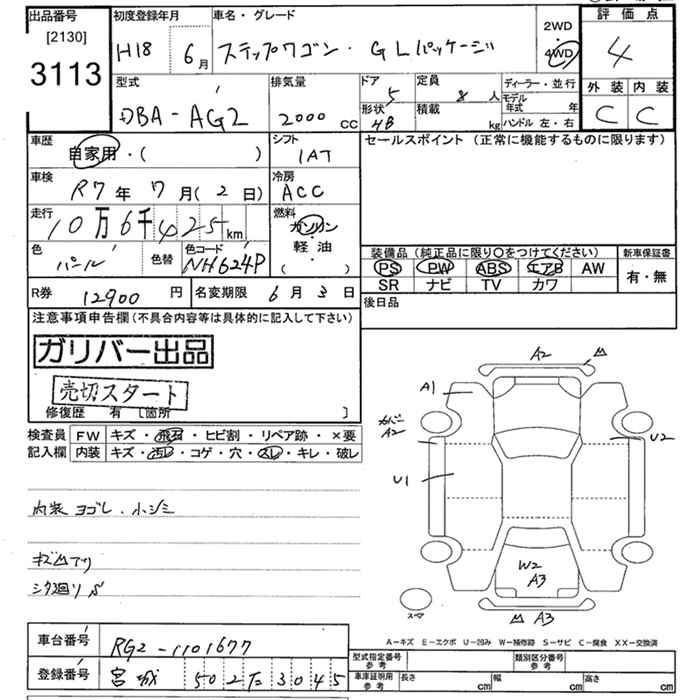 出品番号 初度登録年月 車名・グレード 2WD 評価点
[2130] H18 6月 ステップワゴン・GLパッケージ 4WD 4
3113
型式 排気量 ドア 5 定員 8人 ディーラー・並行 外装 内装
DBA-AG2 2000 CC 形状 4B 積載 kg モデル年式 年 C C
ハンドル 左・右
車歴 シフト セールスポイント(正常に機能するものに限ります)
自家用・( ) IAT
車検 冷房
R7年7月(2日) ACC
走行 燃料
10万6千425km ガソリン・
軽油
( )
色 色替 色コード 装備品(純正品に限り○をつけてください) 新車保証書
パール NH624P PS PW ABS エアB AW 有・無
SR ナビ TV カワ
R券 12900円 名変期限 6月3日 後日品
注意事項申告欄(不具合内容等は具体的に記入して下さい)
ガリバー出品
売切スタート
修復歴 有 [箇所 ]
検査員 FW キズ・飛石・ヒビ割・リペア跡・×要
記入欄 内装 キズ・汚レ・コゲ・穴・スレ・キレ・破レ
内装ヨゴレ・小シミ
キズ凹アリ
シタ廻りS
A2 凹
A1
カバー
A2
U2
U1
W2
A3
スマ
凹 A3
A-キズ E-エクボ U-凹み W-補修跡 S-サビ C-腐食 XX-交換済
車台番号 RG2-1101677 型式指定番号 参考 類別区分番号 参考
登録番号 宮城 502 た 3045 車庫証明用 参考 長さ cm 幅 cm 高さ cm